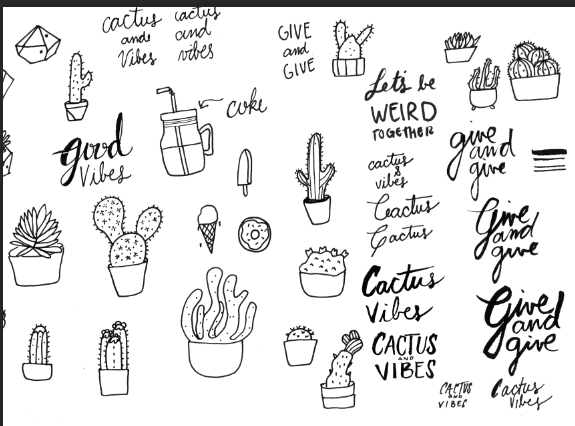 cactus
ande
Vibes
cactus
and
vibes
GIVE
and
GIVE
coke
good
Vibes
Let's be
WEIRD
TOGETHER
cactus
&
vibes
Cactus
Cactus
Cactus
Vibes
CACTUS
AND
VIBES
give
and
give
Give
and
give
Give
and
give
CACTUS
AND
VIBES
Cactus
Vibes